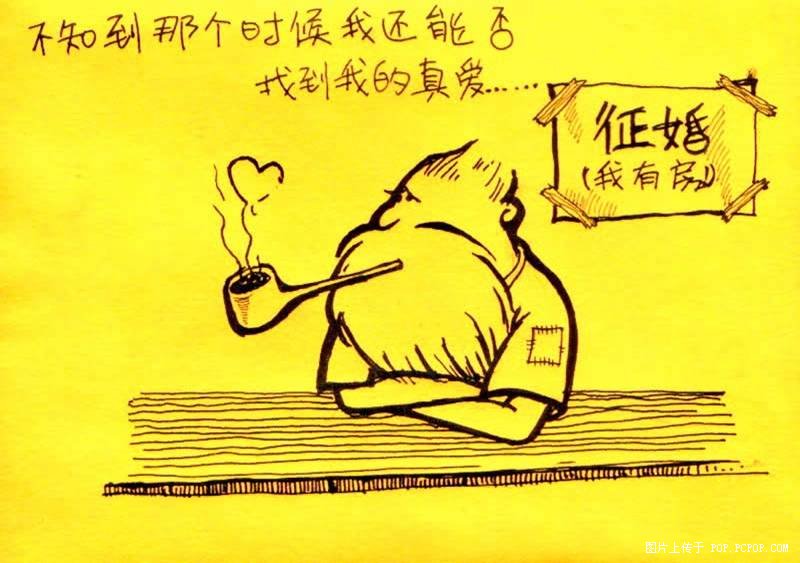 不知到那个时候我还能否
找到我的真爱……
征婚
(我有房)
图片上传于 POP.PCPOP.COM